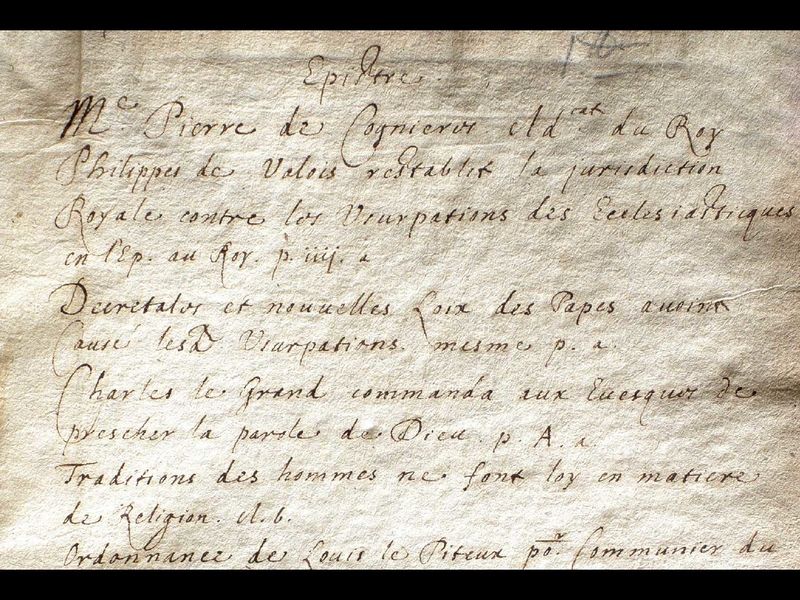 Epistre.
Me. Pierre de Cognieres Adcat du Roy
Philippes de Valois restablit la jurisdiction
Royale contre les Vsurpations des Ecclesiasticques
en l'Ep. au Roy. p. iiij. a
Decretales et nouuelles Loix des Papes auoint
Causé lesd Vsurpations. mesme p. a.
Charles le Grand commanda aux Euesques de
prescher la parole de Dieu. p. A. a.
Traditions des hommes ne font loy en matiere
de Religion. A. b.
Ordonnance de Louis le Piteux por. Communier du